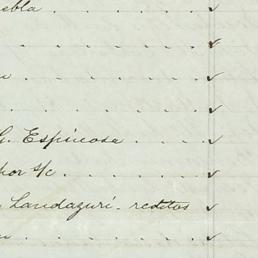 ebla . . . . . . ✓
. . . . . . ✓
. . . . . . ✓
. . . . . . ✓
G. Espinosa . . . . ✓
por s/c . . . . . . ✓
Landazuri - reditos ✓
. . . . . . ✓